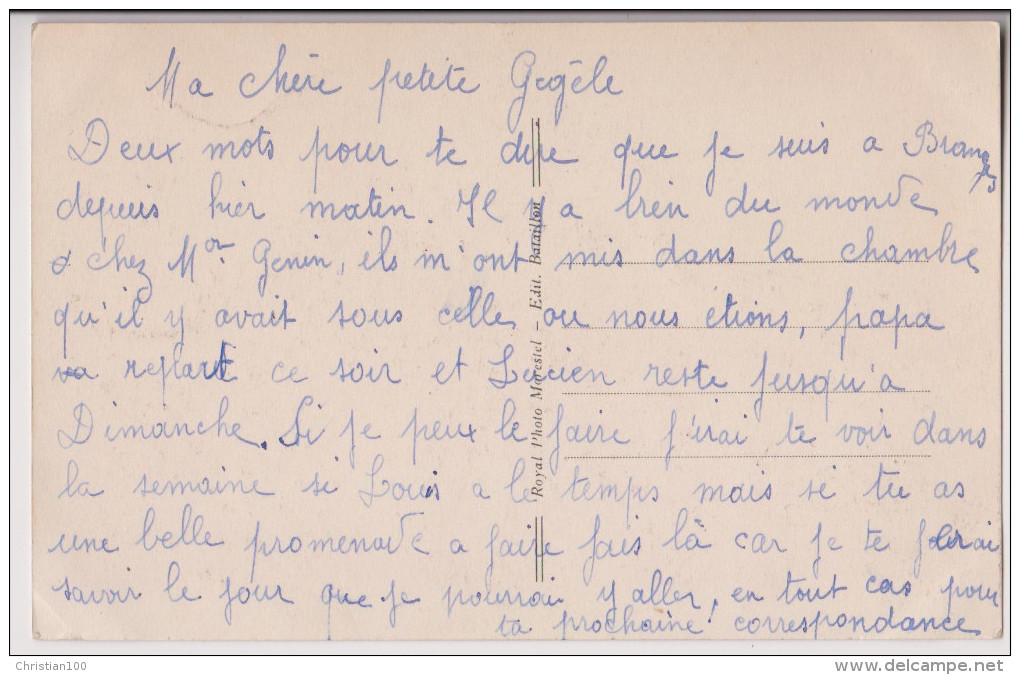 Ma chère petite Gegèle
Deux mots pour te dire que je suis a Brangues
depuis hier matin. Il y a bien du monde
chez Mor. Genin, ils m'ont mis dans la chambre
qu'il y avait sous celle ou nous étions, papa
va repart ce soir et Lucien reste jusqu'a
Dimanche. Si je peux le faire j'irai te voir dans
la semaine si Louis a le temps mais si tu as
une belle promenade a faire fais là car je te ferai
savoir le jour que je pourrai y aller, en tout cas pour
ta prochaine correspondance
Royal Photo Morestel - Edit. Bataillon
Christian100
www.delcampe.net